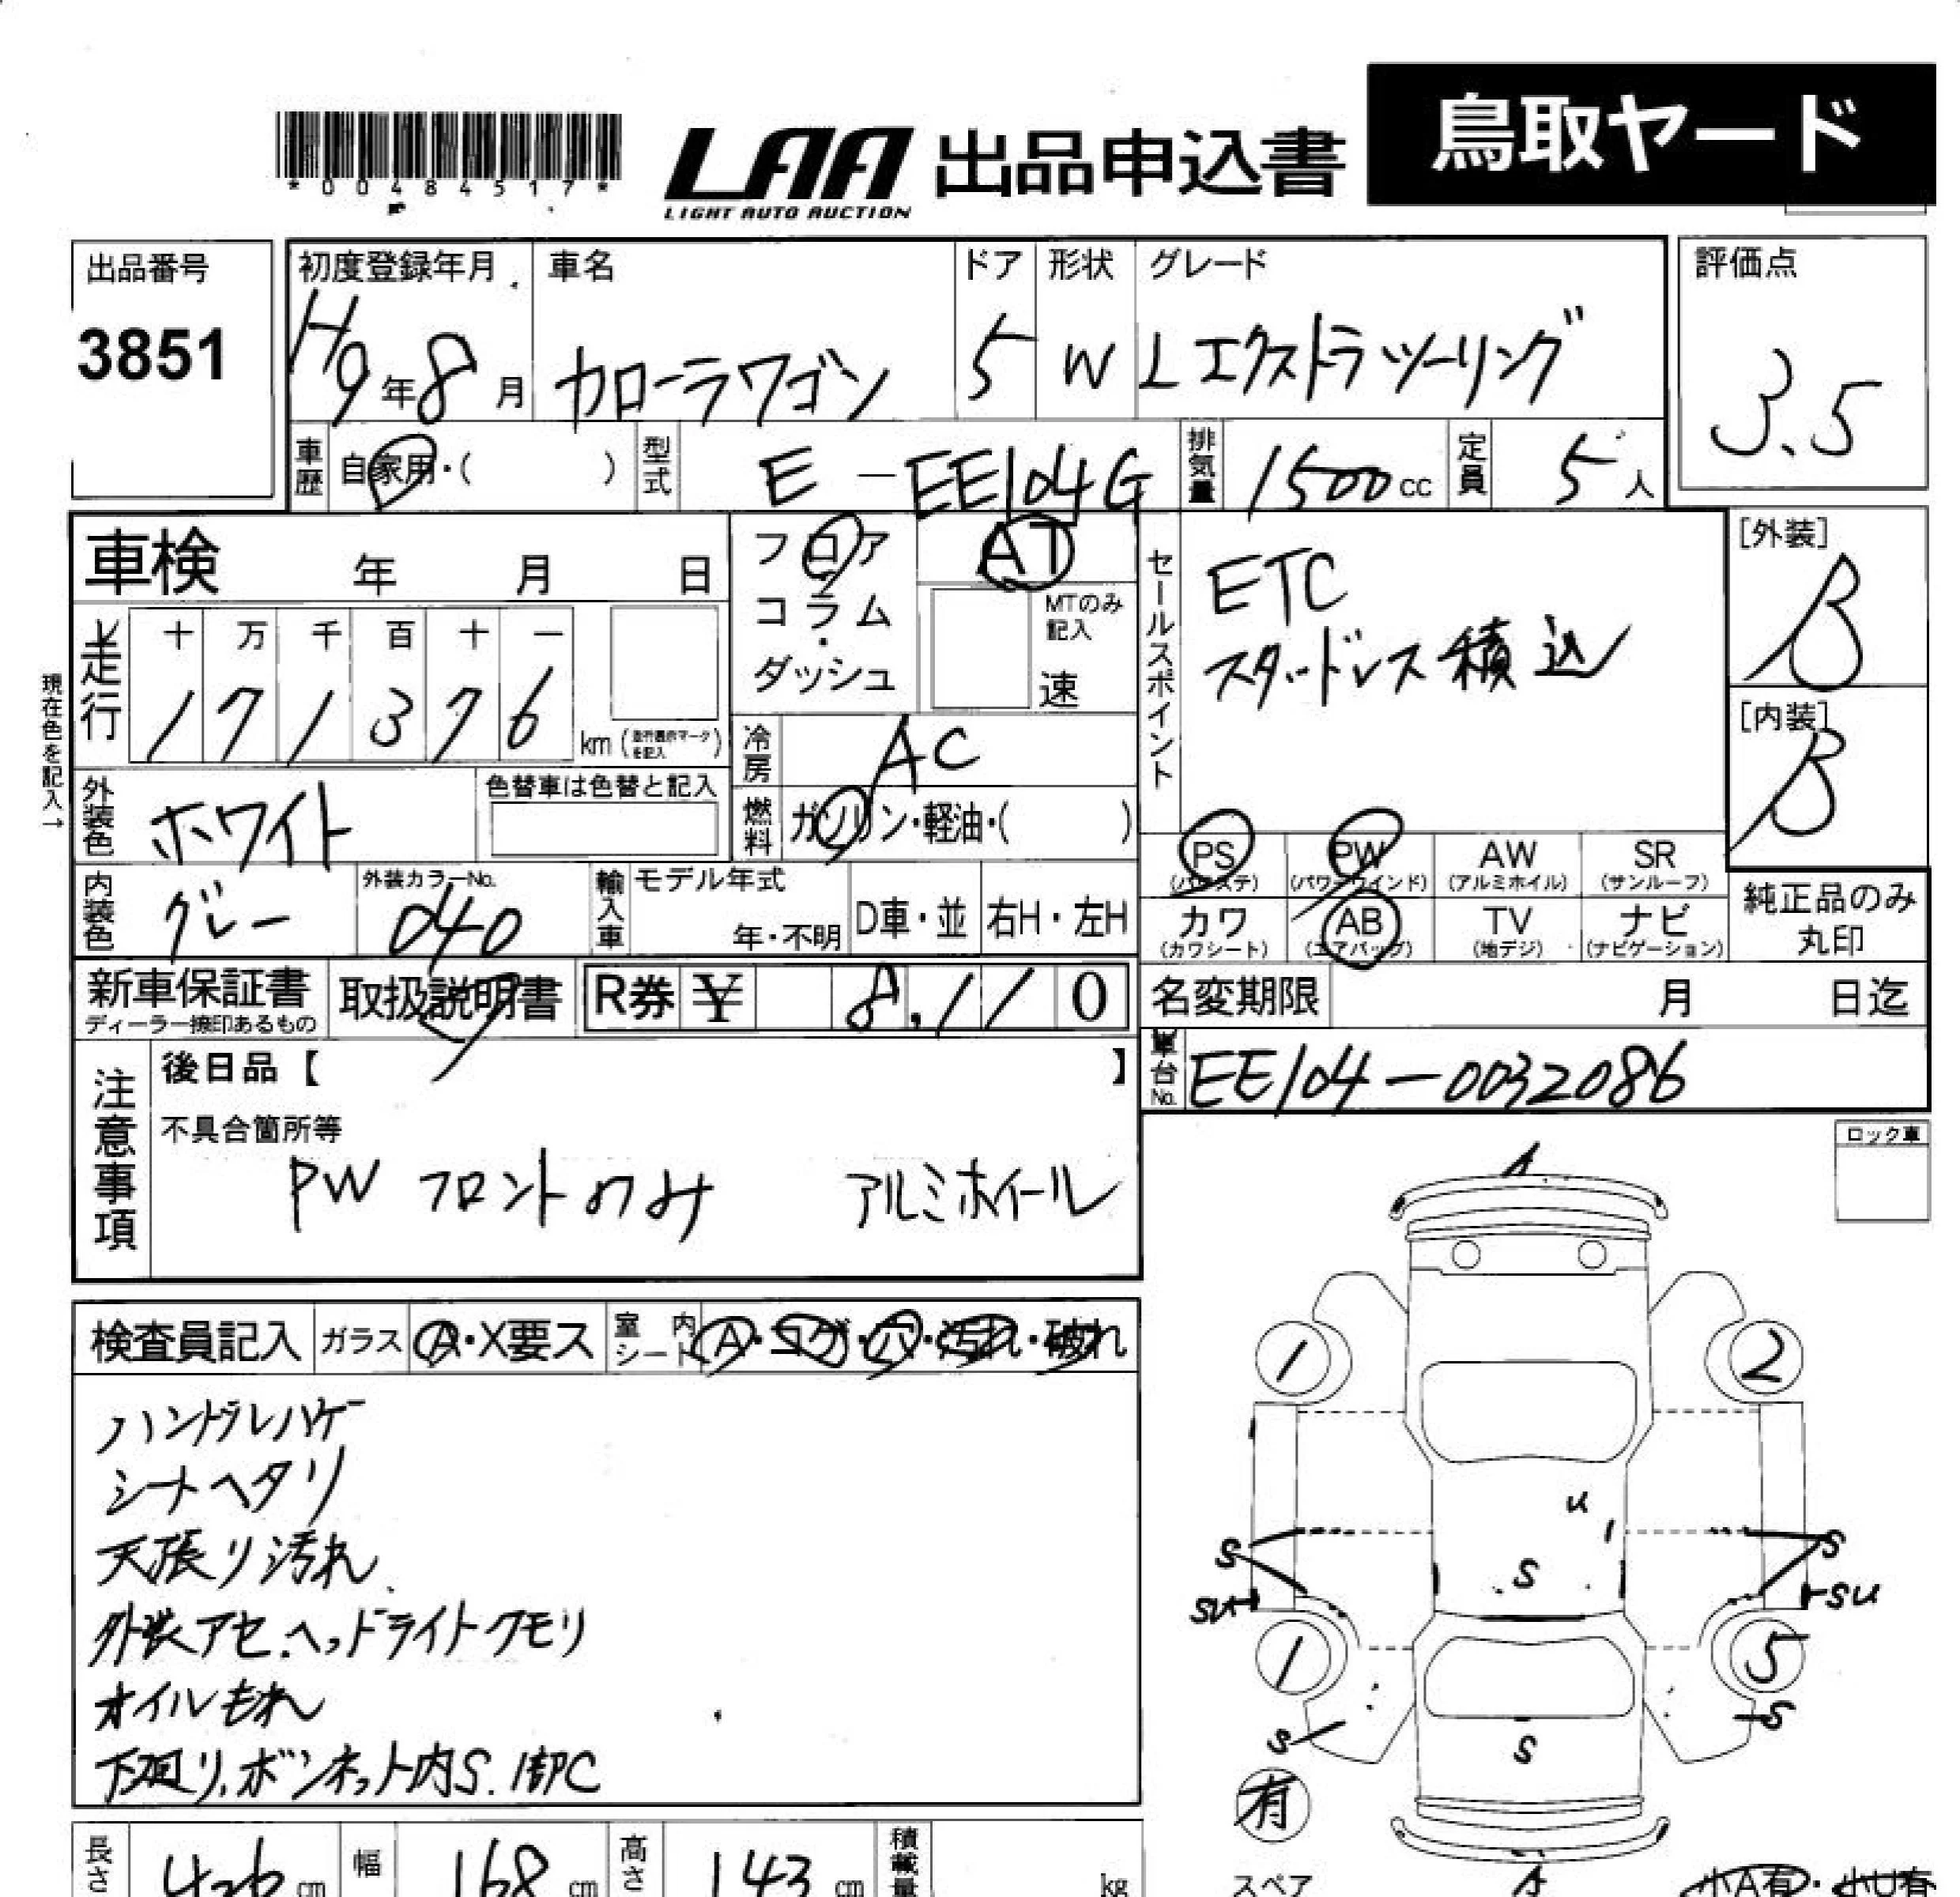 鳥取ヤード
*00484517*
LAA 出品申込書
LIGHT AUTO AUCTION
出品番号
3851
初度登録年月 車名 ドア 形状 グレード
H9年8月 カローラワゴン 5 W Lエクストラツーリング
評価点
3.5
車歴 自家用・( ) 型式 E-EE104G 排気量 1500cc 定員 5人
車検 年 月 日
フロア
コラム
・
ダッシュ
AT
MTのみ
記入
速
セールスポイント
ETC
スタッドレス積込
[外装]
B
[内装]
B
現在色を記入→
走行 十 万 千 百 十 一
171376 km
冷房 AC
燃料 ガソリン・軽油・( )
外装色 ホワイト 色替車は色替と記入
内装色 グレー 外装カラーNo. 040 輸入車 モデル年式 年・不明 D車・並 右H・左H
PS (パワステ) PW (パワーウインド) AW (アルミホイル) SR (サンルーフ)
カワ (カワシート) AB (エアバッグ) TV (地デジ) ナビ (ナビゲーション)
純正品のみ
丸印
新車保証書 取扱説明書 R券 ¥ 8,110
ディーラー捺印あるもの
名変期限 月 日迄
車台No. EE104-0032086
注意事項
後日品【 】
不具合箇所等
PW フロントのみ アルミホイール
ロック車
検査員記入 ガラス A・X要ス 室内シート A・コゲ・穴・汚れ・破れ
ハンドルハゲ
シートヘタリ
天張り汚れ
外装アセ.ヘッドライトクモリ
オイルもれ
下廻り,ボンネット内S.1部C
A
1 2
U
S S S
SU SU
1 5
S S S
有
スペア
A
小A有・小U有
長さ 426cm 幅 168cm 高さ 143cm 積載量 kg